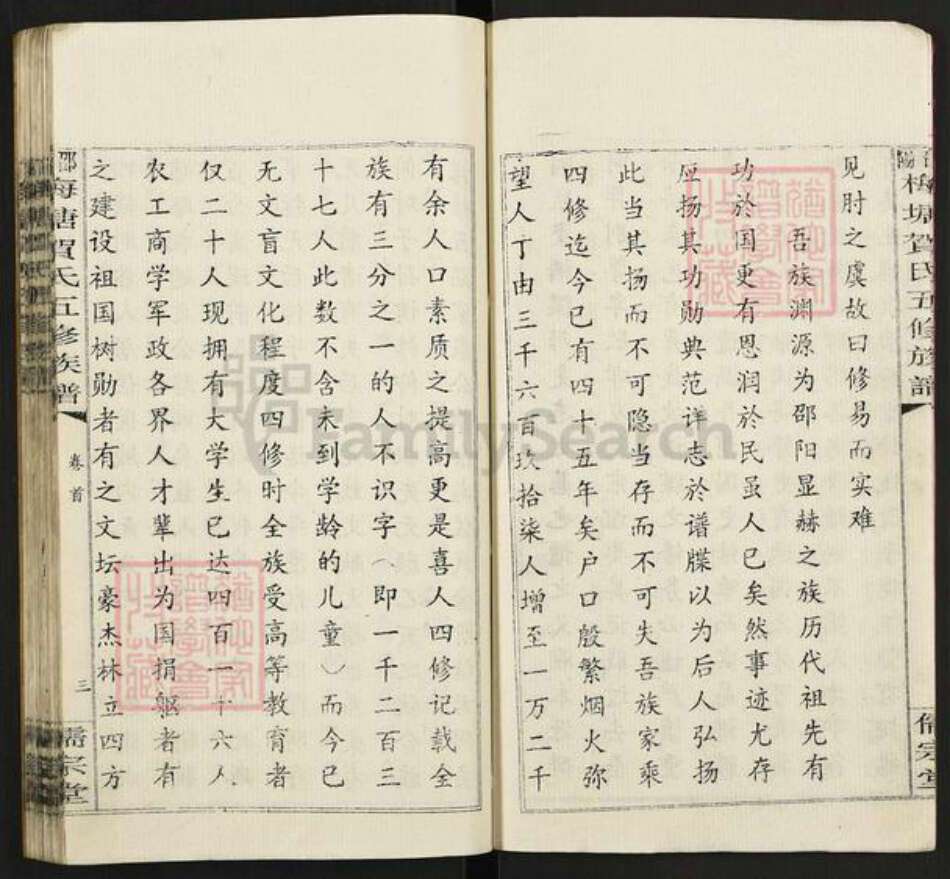 梅塘賀氏五修族譜
見肘之虞故曰修易而实难
吾族渊源为邵阳显赫之族历代祖先有
功於国更有恩润於民虽人已矣然事迹尤存
应扬其功勋典范详志於谱牒以为后人弘扬
此当其扬而不可隐当存而不可失吾族家乘
四修迄今已有四十五年矣户口殷繁烟火弥
望人丁由三千六百玖拾柒人增至一万二千
有余人口素质之提高更是喜人四修记载全
族有三分之一的人不识字（即一千二百三
十七人此数不含未到学龄的儿童）而今已
无文盲文化程度四修时全族受高等教育者
仅二十人现拥有大学生已达四百一十六人
农工商学军政各界人才辈出为国捐躯者有
之建设祖国树勋者有之文坛豪杰林立四方
梅塘賀氏五修族譜
卷首
三
儒宗堂
FamilySearch